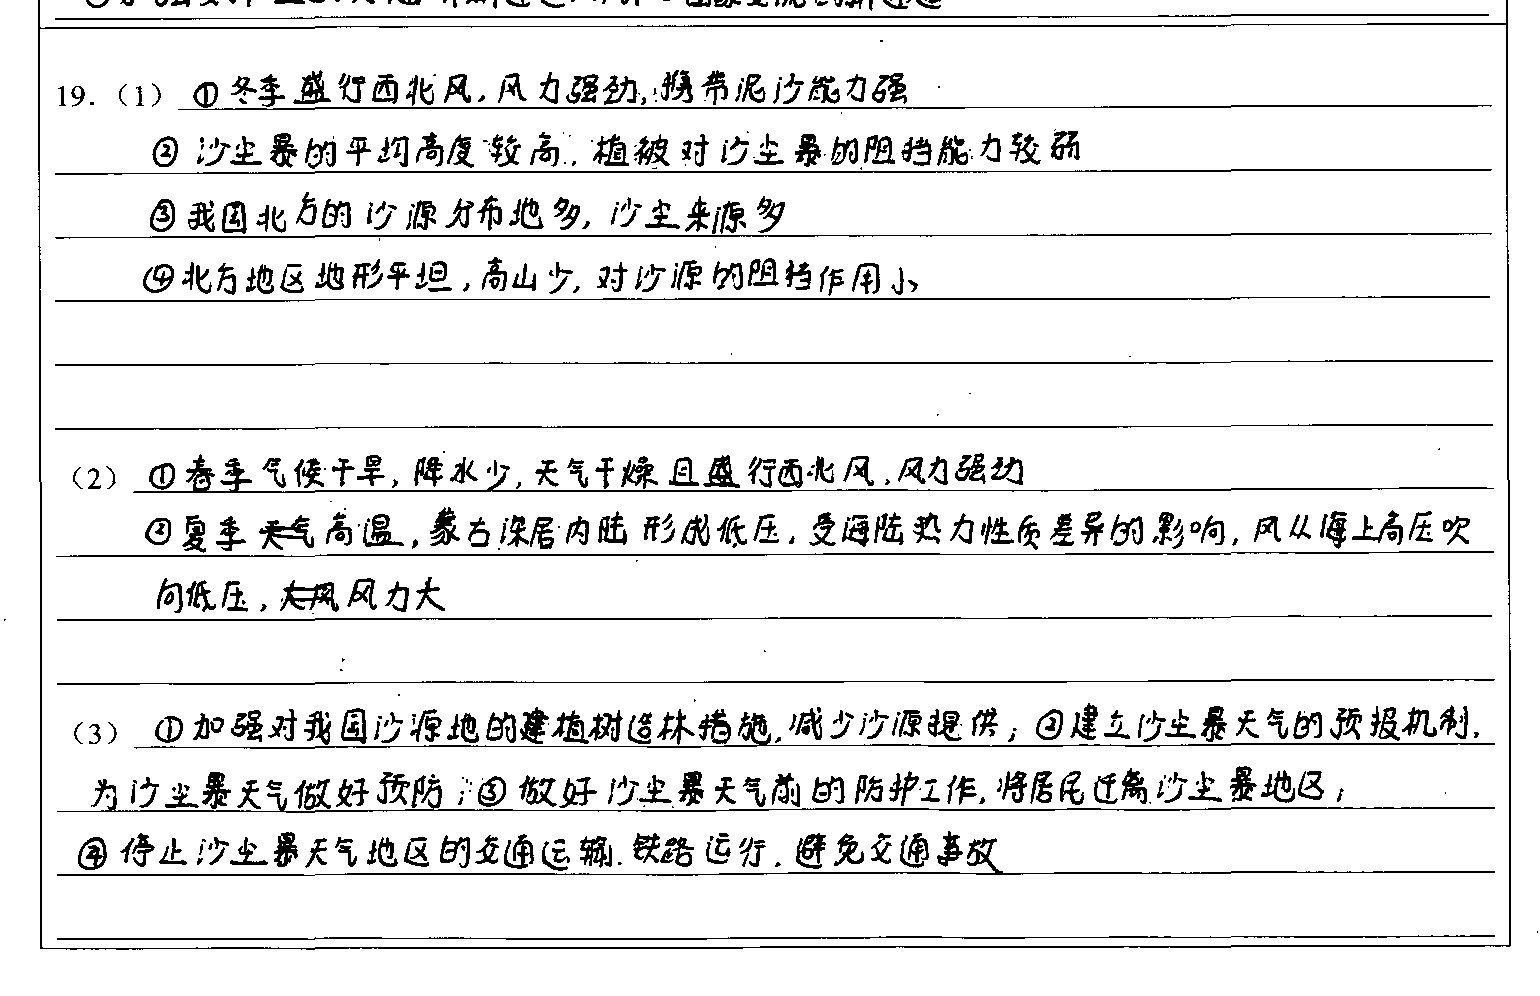 19.（1）①冬季盛行西北风，风力强劲，携带泥沙能力强
②沙尘暴的平均高度较高，植被对沙尘暴的阻挡能力较弱
③我国北方的沙源分布地多，沙尘来源多
④北方地区地形平坦，高山少，对沙源的阻挡作用小
（2）①春季气候干旱，降水少，天气干燥且盛行西北风，风力强劲
②夏季天气高温，蒙古深居内陆形成低压，受海陆热力性质差异的影响，风从海上高压吹
向低压，大风风力大
（3）①加强对我国沙源地的建植树造林措施，减少沙源提供；②建立沙尘暴天气的预报机制，
为沙尘暴天气做好预防；③做好沙尘暴天气前的防护工作，将居民迁离沙尘暴地区；
④停止沙尘暴天气地区的交通运输、铁路运行，避免交通事故